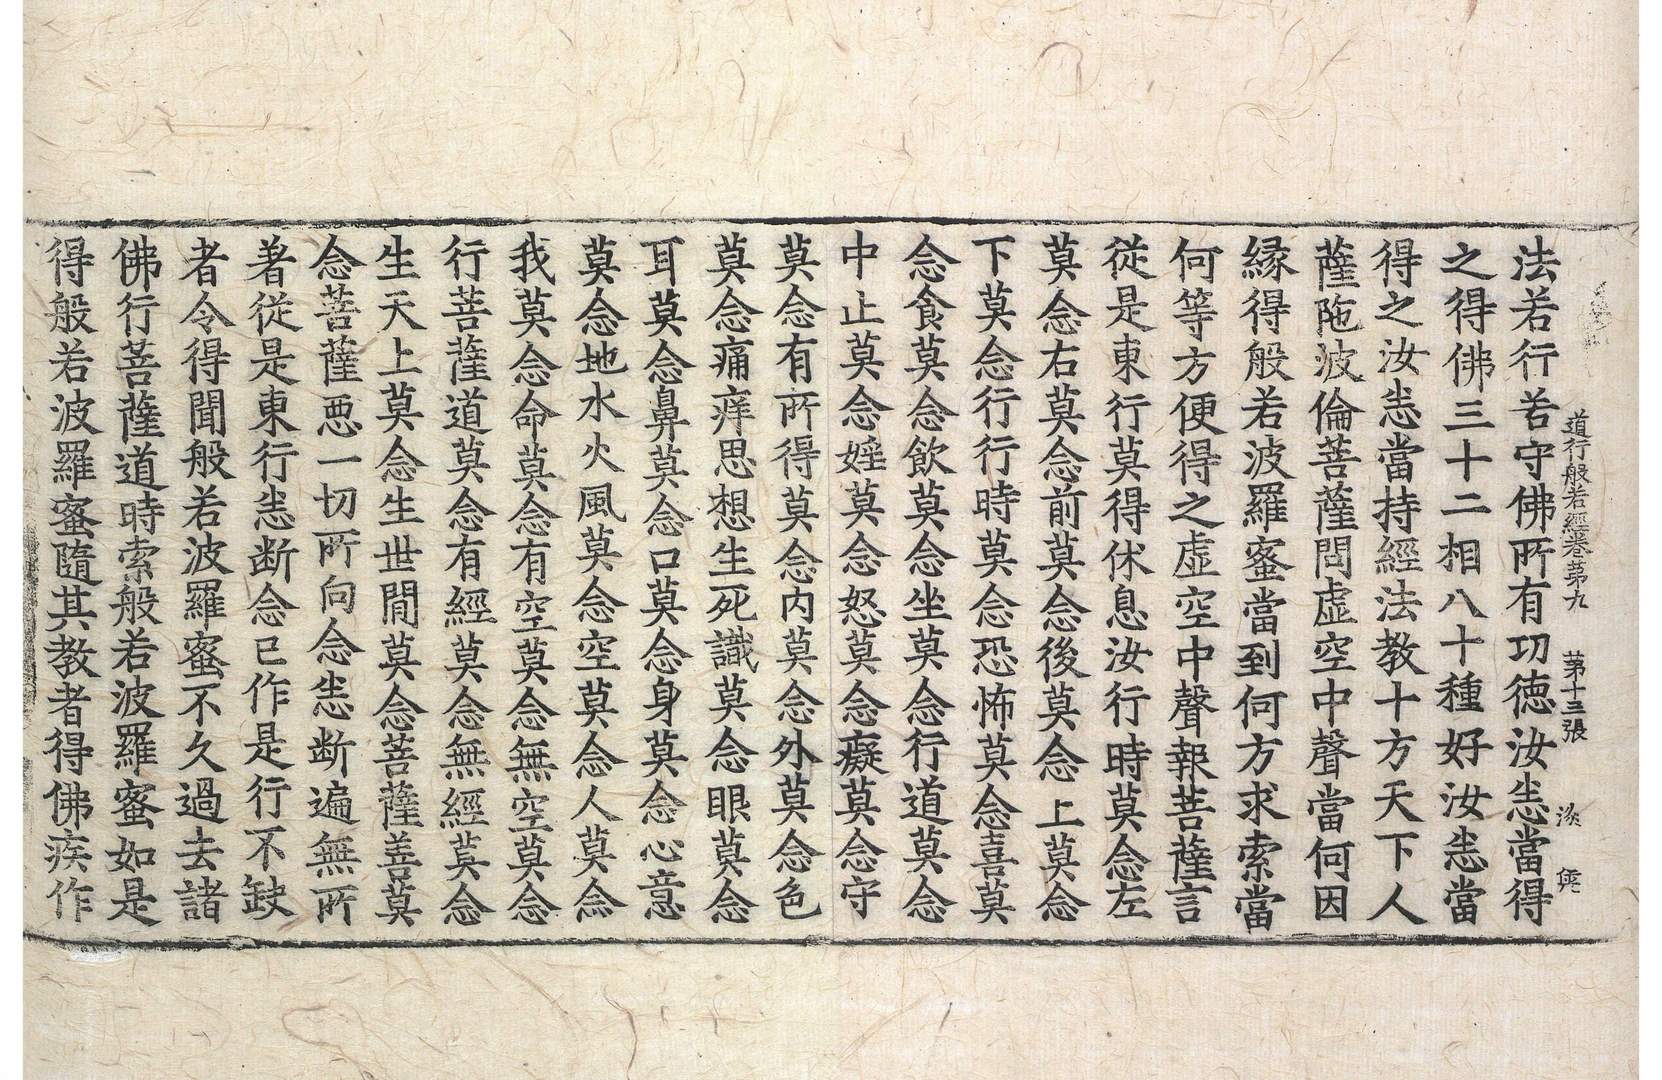 道行般若經卷第九 第十三張 染
法若行若守佛所有功德汝悉當得
之得佛三十二相八十種好汝悉當
得之汝悉當持經法教十方天下人
薩陁波倫菩薩問虛空中聲當何因
緣得般若波羅蜜當到何方求索當
何等方便得之虛空中聲報菩薩言
從是東行莫得休息汝行時莫念左
莫念右莫念前莫念後莫念上莫念
下莫念行行時莫念恐怖莫念喜莫
念食莫念飲莫念坐莫念行道莫念
中止莫念婬莫念怒莫念癡莫念守
莫念有所得莫念内莫念外莫念色
莫念痛痒思想生死識莫念眼莫念
耳莫念鼻莫念口莫念身莫念心意
莫念地水火風莫念空莫念人莫念
我莫念命莫念有空莫念無空莫念
行菩薩道莫念有經莫念無經莫念
生天上莫念生世閒莫念菩薩善莫
念菩薩惡一切所向念悉斷遍無所
著從是東行悉断念已作是行不缺
者令得聞般若波羅蜜不久過去諸
佛行菩薩道時索般若波羅蜜如是
得般若波羅蜜隨其教者得佛疾作